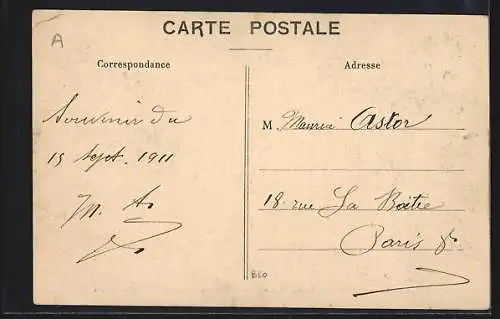 A
CARTE POSTALE
Correspondance
Adresse
Souvenir du
15 Sept. 1911
M. A.
M. Maurice Astor
18. rue La Boëtie
Paris 8e
B50